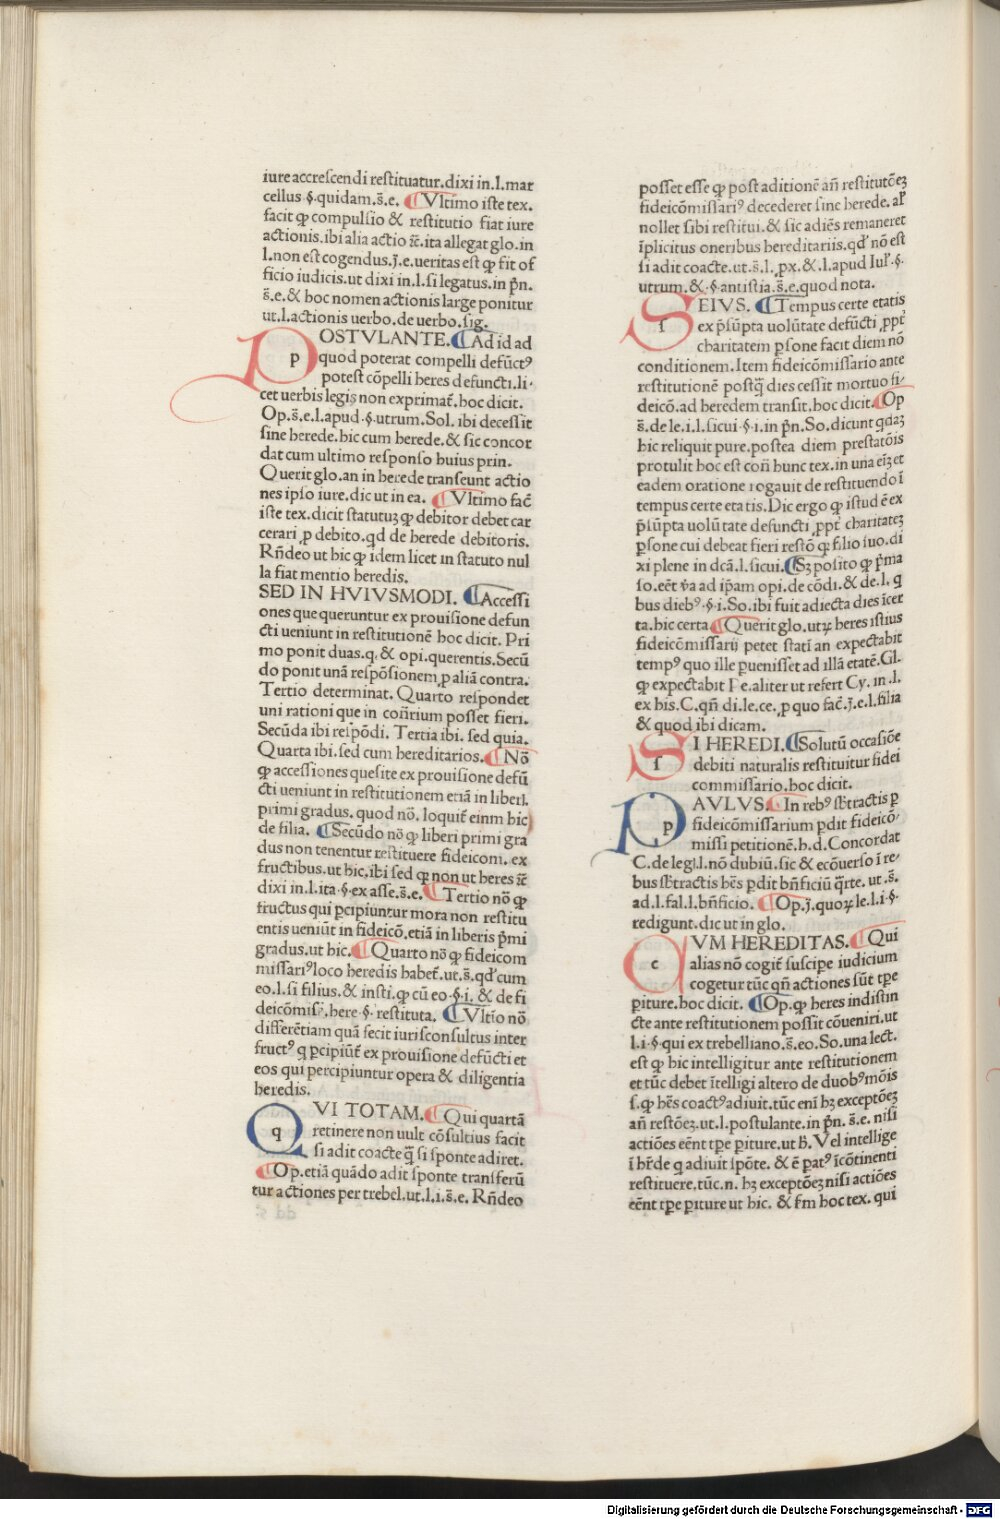 iure accrescendi restituatur.dixi in.l.mar
cellus §.quidam.s̄.e. ¶Vltimo iste tex.
facit ꝙ compulsio & restitutio fiat iure
actionis.ibi alia actio īc̄.ita allegat glo.in
l.non est cogendus.j̄.e.ueritas est ꝙ fit of
ficio iudicis.ut dixi in.l.si legatus.in p̄n.
s̄.e.& hoc nomen actionis large ponitur
ut.l.actionis uerbo.de uerbo.sig.
p OSTVLANTE. ¶Ad id ad
quod poterat compelli defūctꝰ
potest cōpelli heres defuncti.li
cet uerbis legis non exprimat̄.hoc dicit.
Op.s̄.e.l.apud.§.utrum.Sol.ibi decessit
sine herede.hic cum herede.& sic concor
dat cum ultimo responso huius prin.
Querit glo.an in herede transeunt actio
nes ipso iure.dic ut in ea. ¶Vltimo fac̄
iste tex.dicit statutuꝫ ꝙ debitor debet car
cerari ꝓ debito.qd de herede debitoris.
Rn̄deo ut hic ꝙ idem licet in statuto nul
la fiat mentio heredis.
SED IN HVIVSMODI. ¶Accessi
ones que queruntur ex prouisione defun
cti ueniunt in restitutionē hoc dicit. Pri
mo ponit duas.q.& opi.querentis.Secū
do ponit unā respōsionem ꝓ aliā contra.
Tertio determinat. Quarto respondet
uni rationi que in con̄rium posset fieri.
Secūda ibi respōdi. Tertia ibi.sed quia.
Quarta ibi.sed cum hereditarios. ¶Nō
ꝙ accessiones quesite ex prouisione defū
cti ueniunt in restitutionem etiā in liberl.
primi gradus.quod nō.loquit̄ einm hic
de filia. ¶Secūdo nō ꝙ liberi primi gra
dus non tenentur restituere fideicom.ex
fructibus.ut hic.ibi sed ꝙ non ut heres īc̄
dixi in.l.ita.§.ex asse.s̄.e. ¶Tertio nō ꝙ
fructus qui ꝑcipiuntur mora non restitu
entis ueniūt in fideicō.etiā in liberis p̄mi
gradus.ut hic. ¶Quarto nō ꝙ fideicom
missariꝰ loco heredis habet̄.ut.s̄.qd̄ cum
eo.l.si filius.& insti.ꝙ cū eo.§.i. & de fi
deicōmis̄.here.§.restituta. ¶Vltīo nō
differētiam quā fecit iurisconsultus inter
fructꝰ q ꝑcipiūt̄ ex prouisione defūcti et
eos qui percipiuntur opera & diligentia
heredis.
q VI TOTAM. ¶Qui quartā
retinere non uult cōsultius facit
si adit coacte q̄ si sponte adiret.
¶Op.etiā quādo adit sponte transferū
tur actiones per trebel.ut.l.i.s̄.e. Rn̄deo
posset esse ꝙ post aditionē an̄ restitutōeꝫ
fideicōmissariꝰ decederet sine herede.al̄
nollet sibi restitui.& sic adiēs remaneret
īplicitus oneribus hereditariis.qd̄ nō est
si adit coacte.ut.s̄.l.ꝓx.& l.apud Iul̄.§.
utrum.&.§.antistia.s̄.e.quod nota.
s EIVS. ¶Tempus certe etatis
ex p̄sūpta uolūtate defūcti ꝓpt̄
charitatem ꝑsone facit diem nō
conditionem.Item fideicōmissario ante
restitutionē postq̄ dies cessit mortuo fi
deicō.ad heredem transit.hoc dicit. ¶Op
s̄.de le.i.l.sicui.§.i.in p̄n.So.dicunt qdaꝫ
hic reliquit pure.postea diem prestatōis
protulit hoc est con̄ hunc tex.in una eīꝫ et
eadem oratione rogauit de restituendo ī
tempus certe etatis.Dic ergo ꝙ istud ē ex
p̄sūpta uolūtate defuncti ꝓpt̄ charitateꝫ
ꝑsone cui debeat fieri restō ꝗ filio suo.di
xi plene in dcā.l.sicui. ¶Sꝫ posito ꝙ p̄ma
so.eēt v̄a ad ip̄am opi.de cōdi.& de.l. q
bus diebꝰ.§.i.So.ibi fuit adiecta dies īcer
ta.hic certa ¶Querit glo.utꝝ heres istius
fideicōmissarij petet statī an expectabit
tempꝰ quo ille ꝑuenisset ad illā etatē.Gl.
ꝙ expectabit Pe.aliter ut refert Cy.in.l.
ex his.C.qn̄ di.le.ce.ꝓ quo fac̄.j̄.e.l.filia
& quod ibi dicam.
s I HEREDI. ¶Solutū occasiōe
debiti naturalis restituitur fidei
commissario.hoc dicit.
p AVLVS. ¶In rebꝰ sb̄tractis ꝑ
fideicōmissarium ꝑdit fideicō
missi petitionē.h.d.Concordat
C.de leg.l.nō dubiū.sic & ecōuerso ī re
bus sb̄tractis hēs ꝑdit bn̄ficiū q̄rte.ut.s̄.
ad.l.fal.l.bn̄ficio. ¶Op.j̄.quoꝝ le.l.i.§.
redigunt.dic ut in glo.
c VM HEREDITAS. ¶Qui
alias nō cogit̄ suscipe iudicium
cogetur tūc qn̄ actiones sūt tꝑe
ꝑiture.hoc dicit. ¶Op.ꝙ heres indistin
cte ante restitutionem possit cōueniri.ut
l.i.§.qui ex trebelliano.s̄.eo.So.una lect.
est ꝙ hic intelligitur ante restitutionem
et tūc debet ītelligi altero de duobꝰ mōis
s.ꝙ hēs coactꝰ adiuit.tūc enī hꝫ exceptōeꝫ
an̄ restōeꝫ.ut.l.postulante.in p̄n. s̄.e. nisi
actiōes eēnt tꝑe ꝑiture.ut h̄. Vel intellige
ī hr̄de q adiuit spōte.& ē ꝑatꝰ īcōtinenti
restituere.tūc.n. hꝫ exceptōeꝫ nisi actiōes
eēnt tꝑe ꝑiture ut hic. & s̄m hoc tex. qui
Digitalisierung gefördert durch die Deutsche Forschungsgemeinschaft - DFG